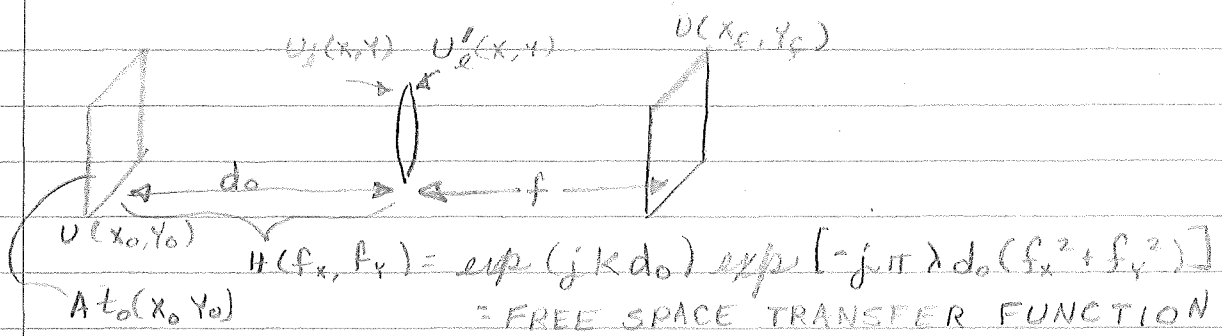 U_l(x,y) U_l'(x,y) U(x_f, y_f)
d_o f
U(x_o, y_o)
H(f_x, f_y) = exp(jkd_o) exp[-jπλd_o(f_x² + f_y²)]
A t_o(x_o y_o)
= FREE SPACE TRANSFER FUNCTION